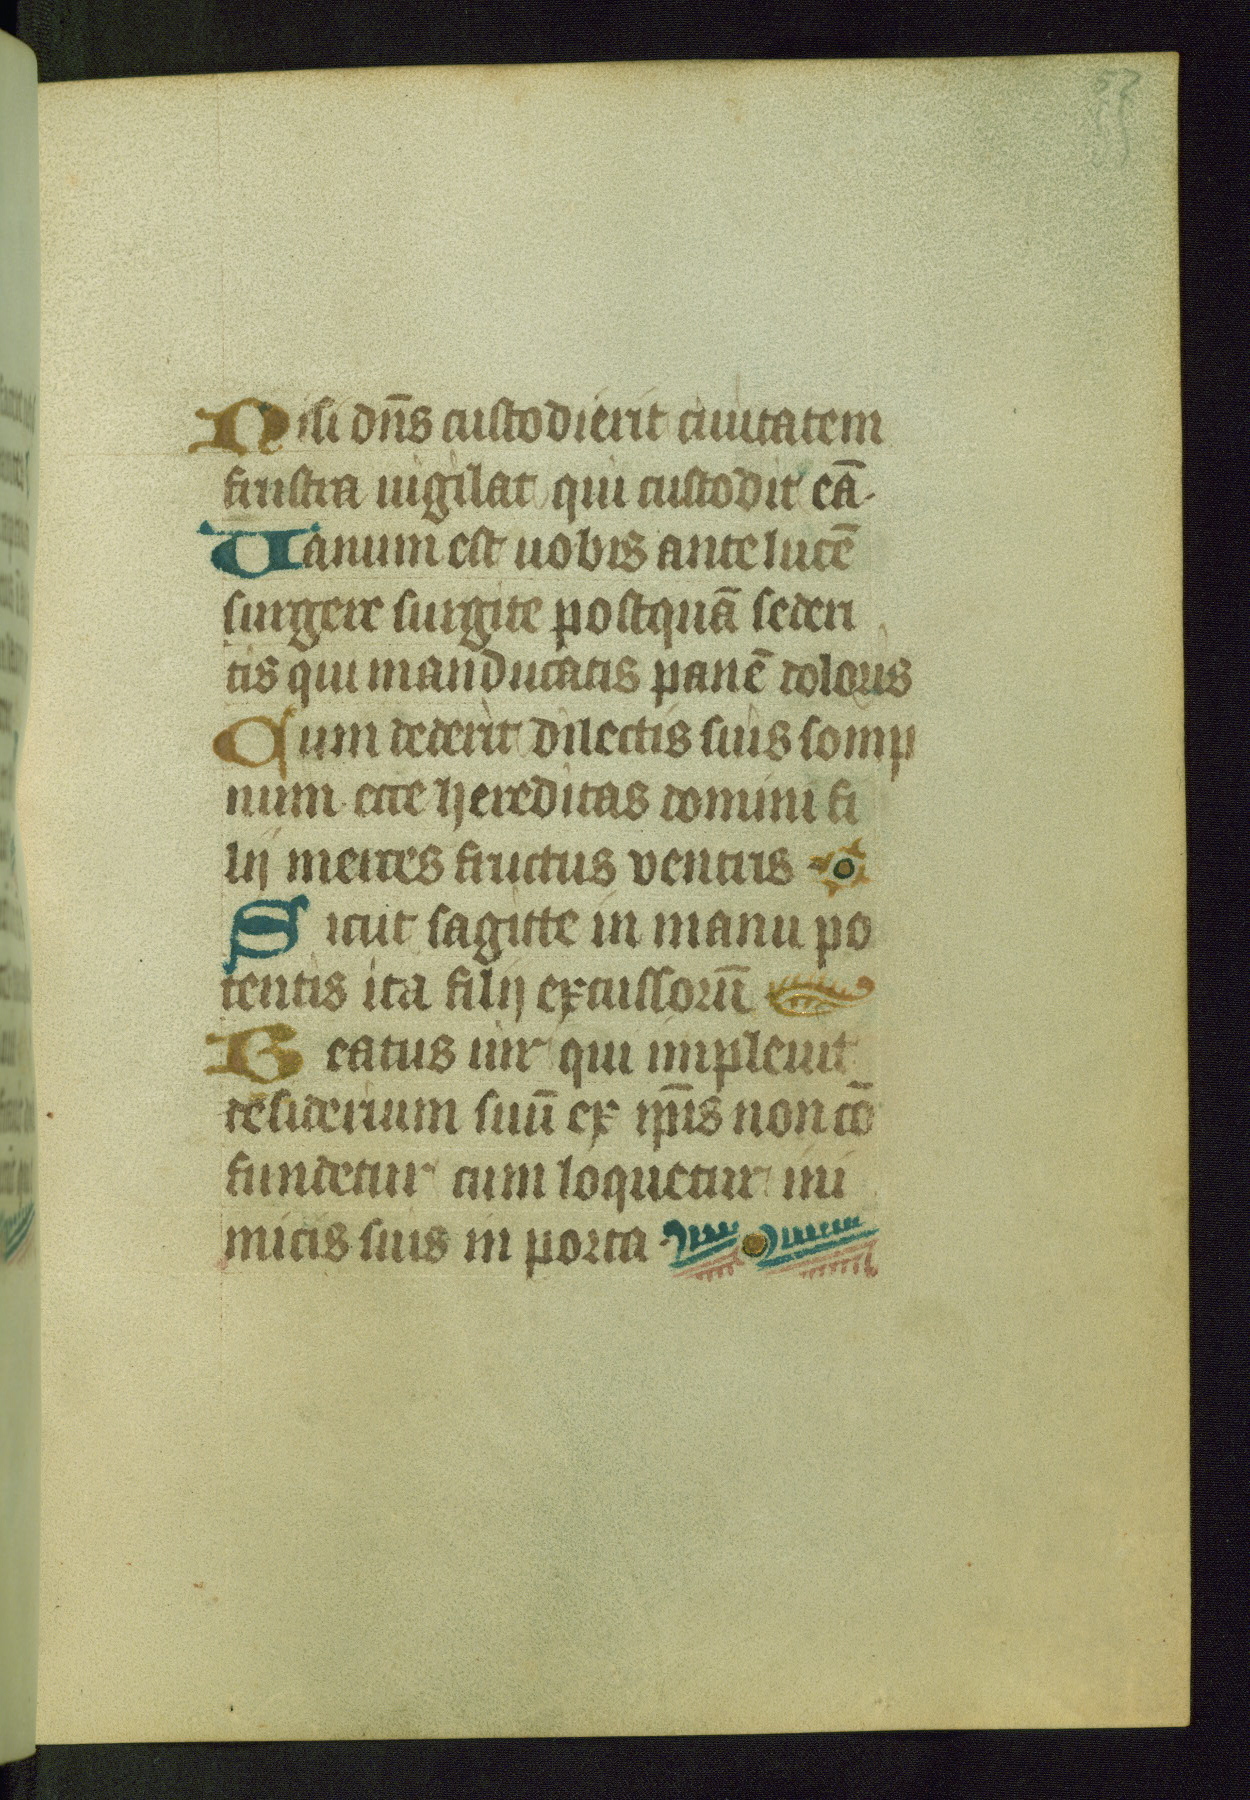 57
Nisi dn̄s custodierit ciuitatem
frustra uigilat qui custodit eā.
Uanum est uobis ante lucē
surgere surgite postquā sederi
tis qui manducatis panē doloris
Cum dederit dilectis suis somp
num ecce hereditas domini fi
lij merces fructus ventris
Sicut sagitte in manu po
tentis ita filij excussorū
Beatus uir qui impleuit
desiderium suū ex ip̄is non cō
fundetur cum loquetur ini
micis suis in porta